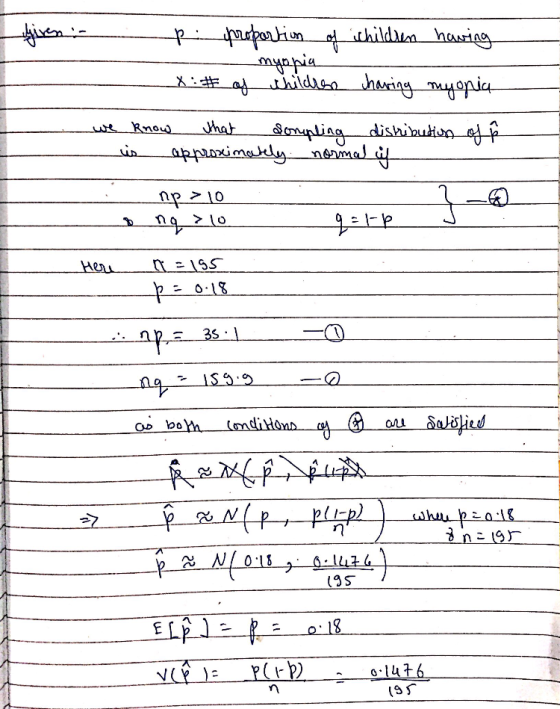 Given :- p : proportion of children having
myopia
x : # of children having myopia
we know that sampling distribution of p̂
is approximately normal if
np > 10
& nq > 10 q = 1-p } —⊛
Here n = 195
p = 0.18
∴ np = 35.1 —①
nq = 159.9 —②
as both conditions of ⊛ are satisfied
⇒ p̂ ≈ N(p, p(1-p)/n) where p = 0.18
& n = 195
p̂ ≈ N(0.18, 0.1476/195)
E[p̂] = p = 0.18
V(p̂) = p(1-p)/n = 0.1476/195